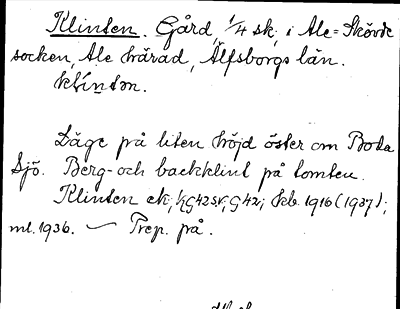 Klinten. Gård, 1/4 sk, i Ale-Skövde
socken, Ale härad, Älfsborgs län.
klíntən.
Läge på liten höjd öster om Boda
Sjö. Berg- och backklint på tomten.
Klinten ek; hG42sv, G42; kb. 1916 (1937);
ml. 1936. — Prep. på.